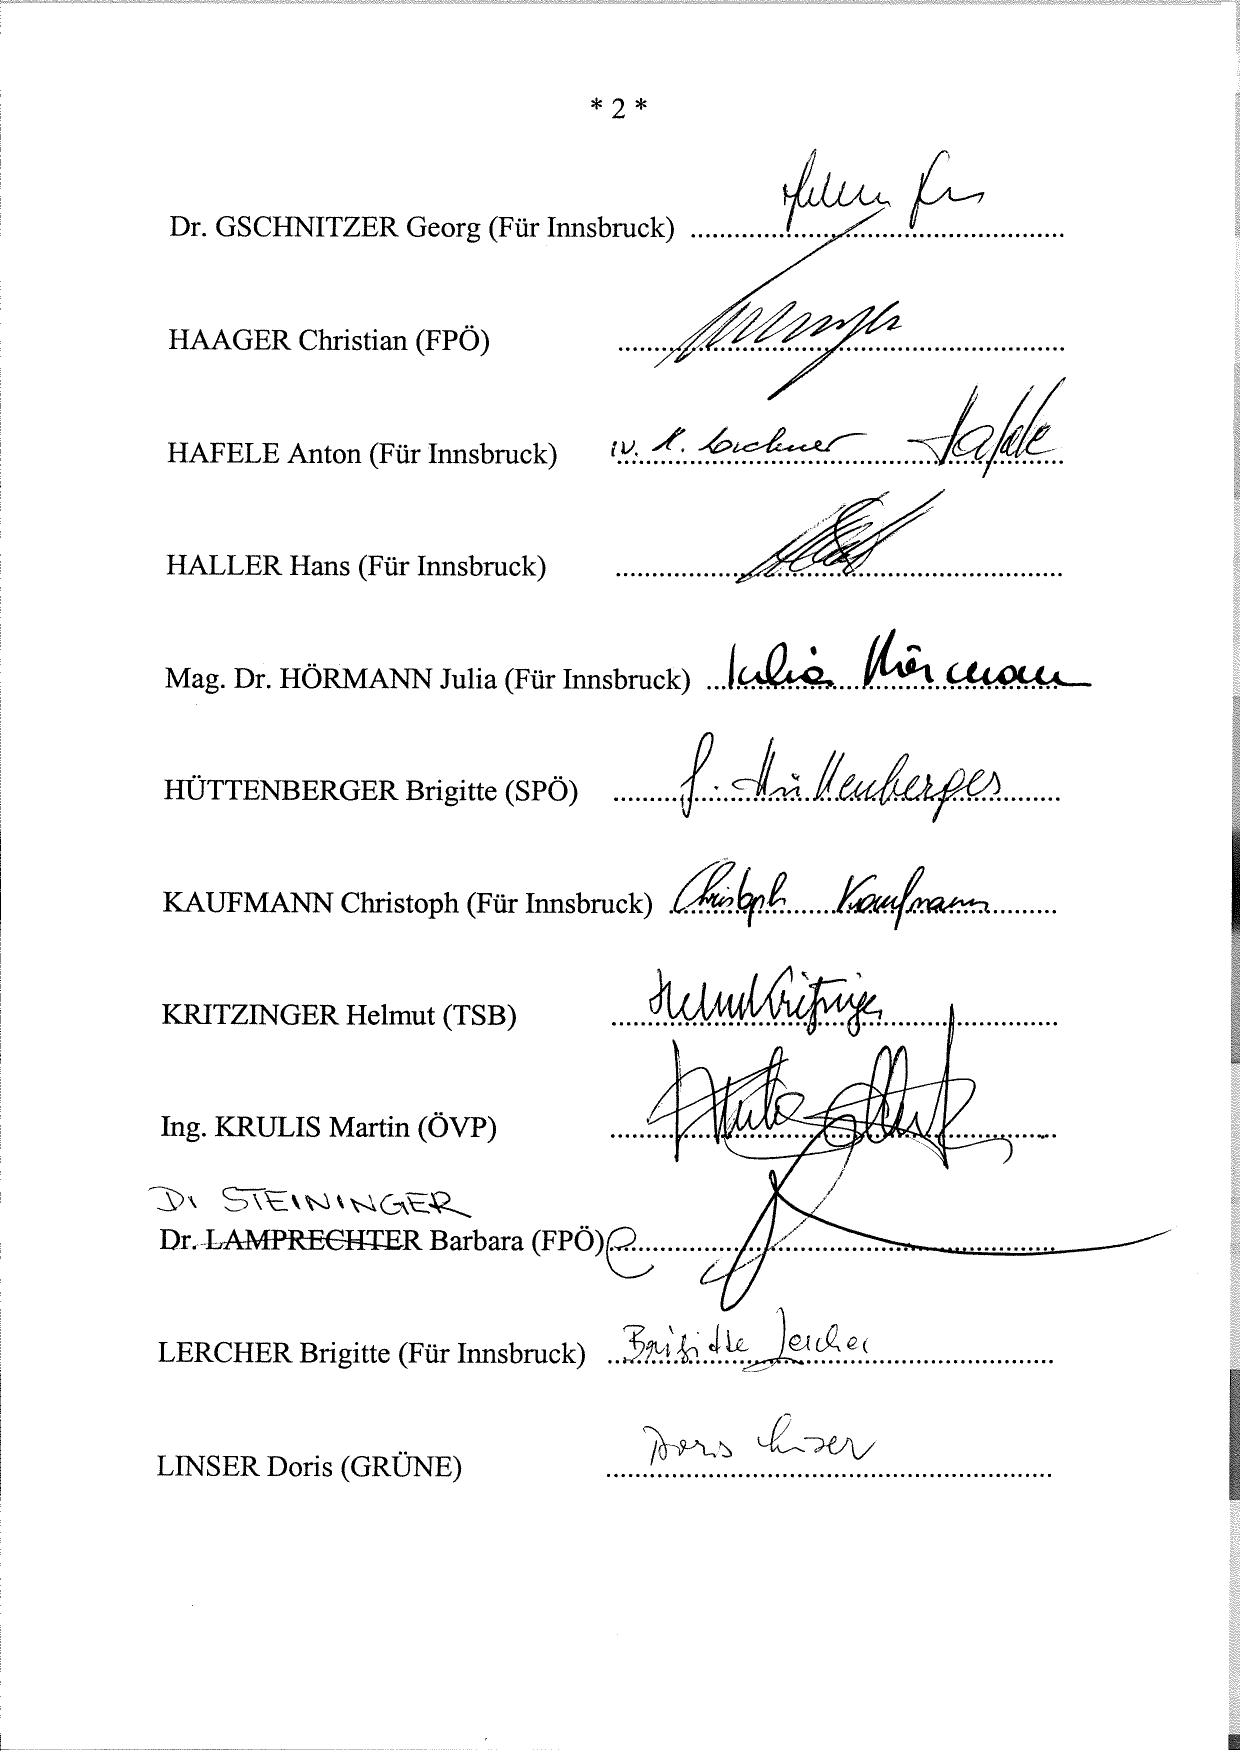 * 2 *
Dr. GSCHNITZER Georg (Für Innsbruck) ..........
HAAGER Christian (FPÖ) ..........
HAFELE Anton (Für Innsbruck) iv. K. Lorchner Hafele
HALLER Hans (Für Innsbruck) ..........
Mag. Dr. HÖRMANN Julia (Für Innsbruck) Julia Hörmann
HÜTTENBERGER Brigitte (SPÖ) Hüttenberger
KAUFMANN Christoph (Für Innsbruck) Christoph Kaufmann
KRITZINGER Helmut (TSB) Helmut Kritzinger
Ing. KRULIS Martin (ÖVP) ..........
DI STEININGER
Dr. LAMPRECHTER Barbara (FPÖ) ..........
LERCHER Brigitte (Für Innsbruck) Brigitte Lercher
LINSER Doris (GRÜNE) Doris Linser